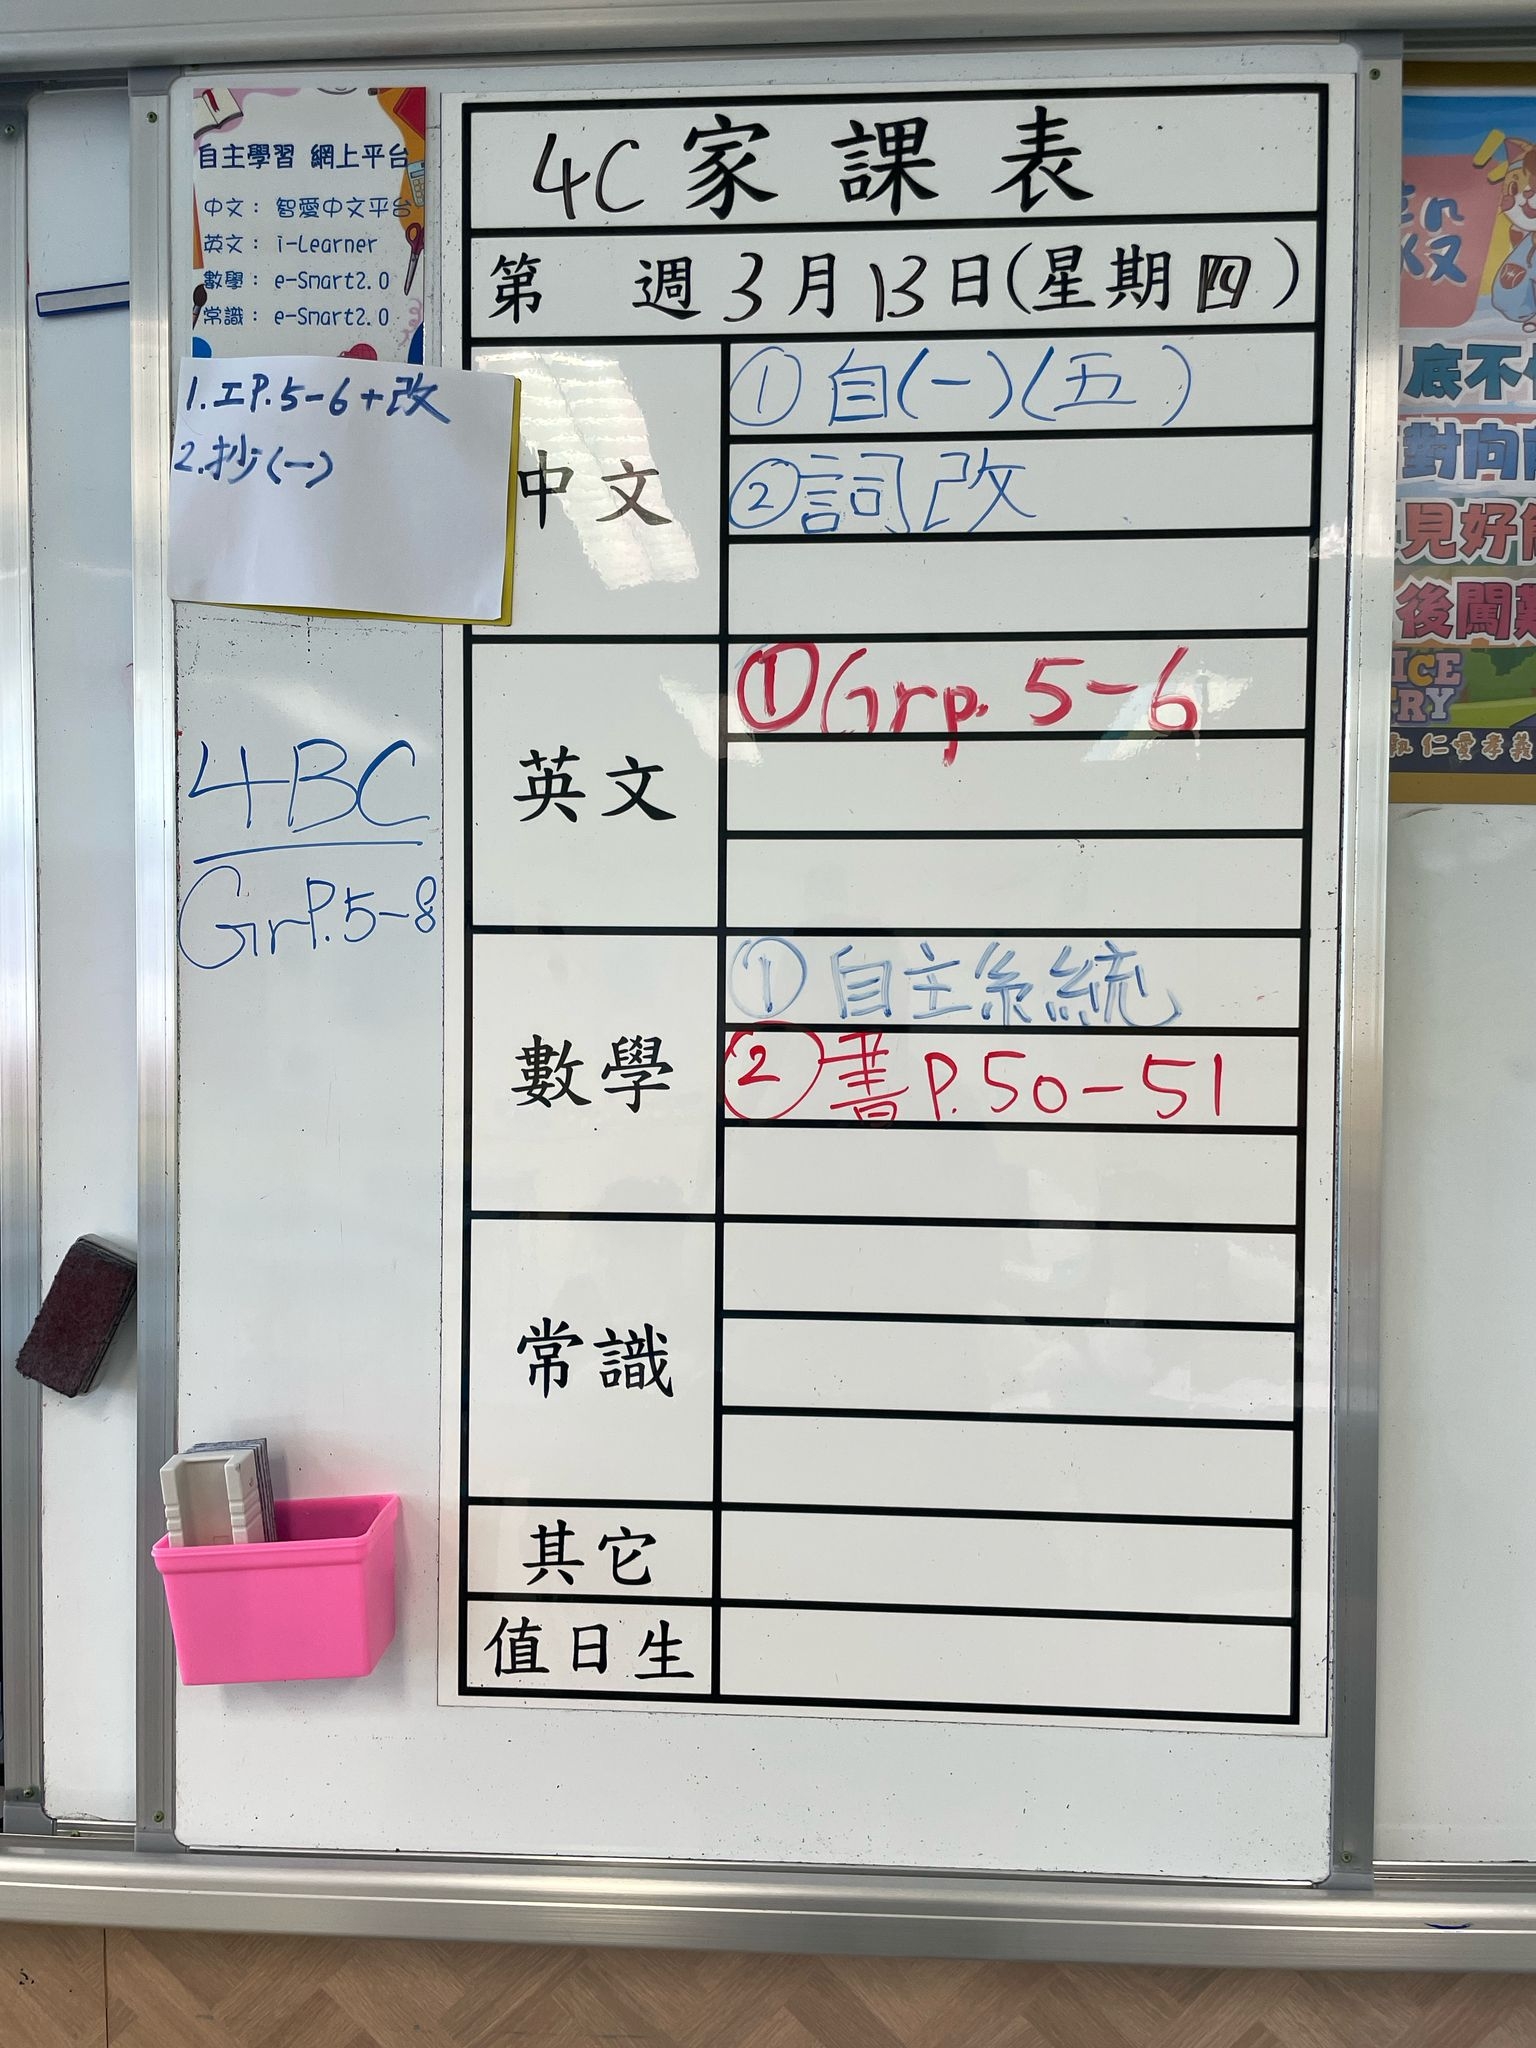 自主學習 網上平台
中文： 智愛中文平台
英文： i-Learner
數學： e-Smart2.0
常識： e-Smart2.0
1.工P.5-6+改
2.抄(一)
4BC
GrP.5-8
4C 家課表
第 週 3月13日(星期四)
中文
① 自(一)(五)
②詞改
英文
①Grp. 5-6
數學
① 自主系統
② 書P.50-51
常識
其它
值日生
底不
對向
見好
後闖
ICE
TRY
仁愛孝義